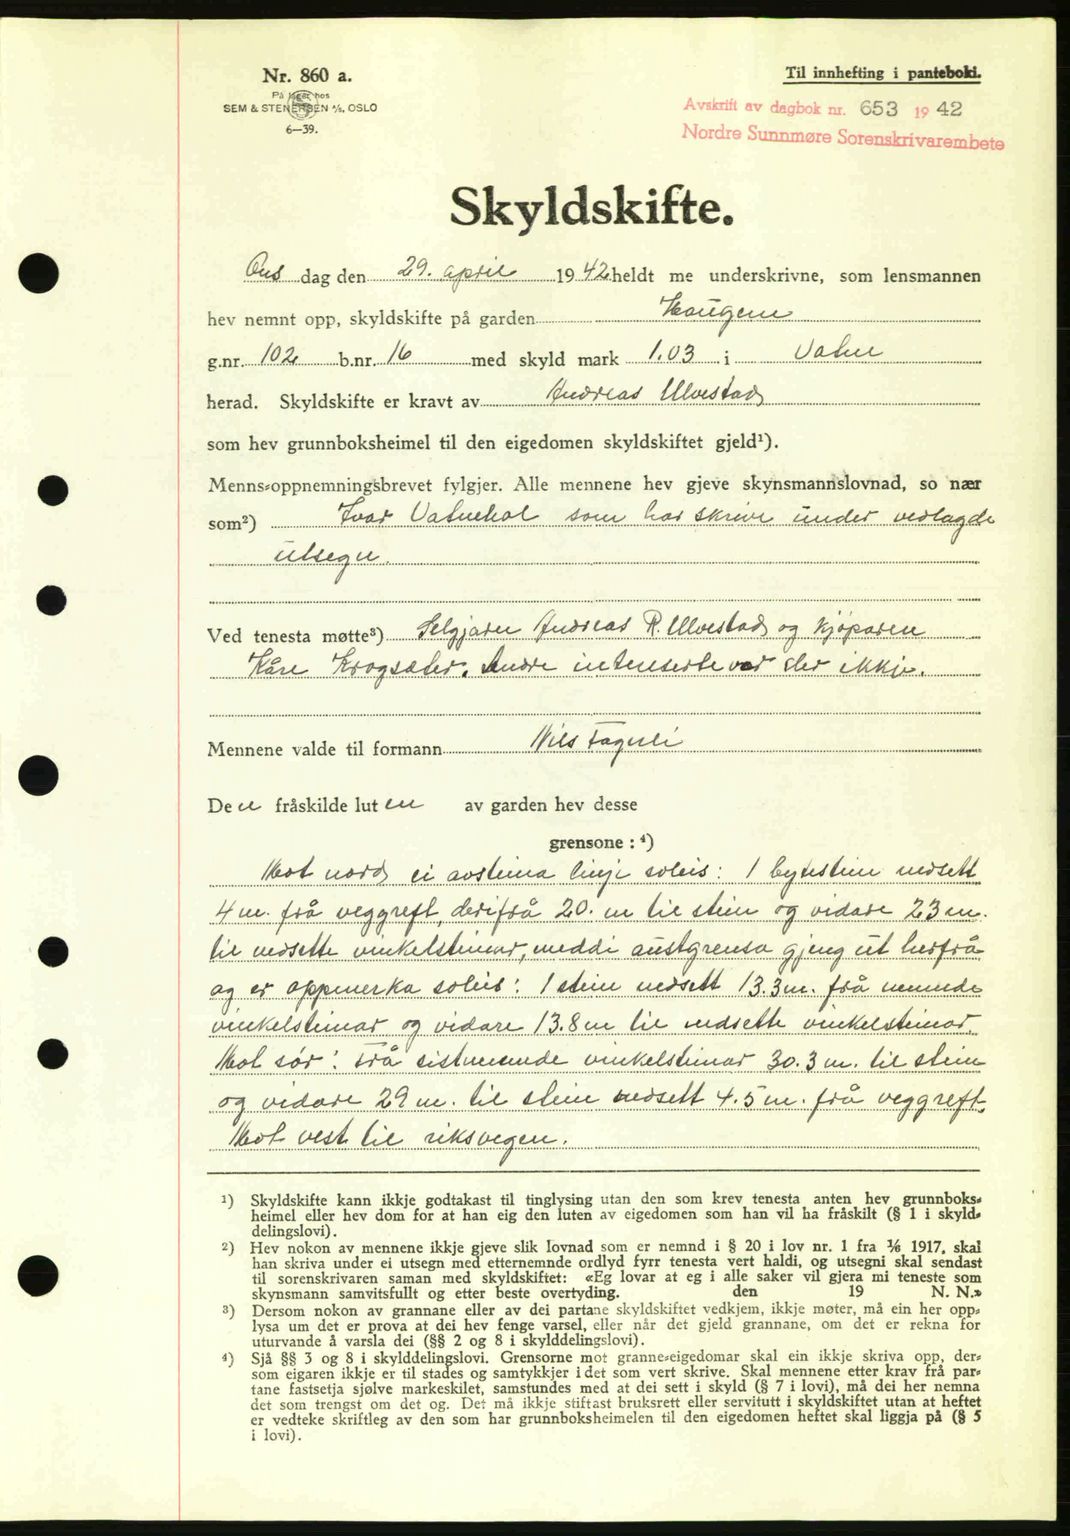 Nr. 860 a.
På lager hos
SEM & STENERSEN A/S, OSLO
6—39.
Til innhefting i panteboki.
Avskrift av dagbok nr. 653 1942
Nordre Sunnmøre Sorenskrivarembete
Skyldskifte.
Ons dag den 29. april 1942 heldt me underskrivne, som lensmannen
hev nemnt opp, skyldskifte på garden Haugen
g.nr. 102 b.nr. 16 med skyld mark 1.03 i Vatne
herad. Skyldskifte er kravt av Andreas Ulvestad
som hev grunnboksheimel til den eigedomen skyldskiftet gjeld¹).
Menns-oppnemningsbrevet fylgjer. Alle mennene hev gjeve skynsmannslovnad, so nær
som²) Ivar Vatnehol som har skrive under vedlagde
utsegn.
Ved tenesta møtte³) Selgjaren Andreas R. Ulvestad og kjøparen
Kåre Krogsæter. Andre interserte var der ikkje.
Mennene valde til formann Nils Fagerli
Den fråskilde luten av garden hev desse
grensone : ⁴)
Mot nord ei avsteina linje soleis: 1 bytestein nedsett
4 m. frå veggreft, derifrå 20. m til stein og vidare 23 m.
til nedsette vinkelsteinar, meddi austgrensa gjeng ut herfrå
og er oppmerka soleis: 1 stein nedsett 13.3 m. frå nemnde
vinkelsteinar og vidare 13.8 m til nedsette vinkelsteinar.
Mot sør: Frå sistnemnde vinkelsteinar 30.3 m. til stein
og vidare 29 m. til stein nedsett 4.5 m. frå veggreft.
Mot vest til riksvegen.
¹) Skyldskifte kann ikkje godtakast til tinglysing utan den som krev tenesta anten hev grunnboks-
heimel eller hev dom for at han eig den luten av eigedomen som han vil ha fråskilt (§ 1 i skyld-
delingslovi).
²) Hev nokon av mennene ikkje gjeve slik lovnad som er nemnd i § 20 i lov nr. 1 fra 1/6 1917, skal
han skriva under ei utsegn med etternemnde ordlyd fyrr tenesta vert haldi, og utsegni skal sendast
til sorenskrivaren saman med skyldskiftet: «Eg lovar at eg i alle saker vil gjera mi teneste som
skynsmann samvitsfullt og etter beste overtyding. den 19 N. N.»
³) Dersom nokon av grannane eller av dei partane skyldskiftet vedkjem, ikkje møter, må ein her opp-
lysa um det er prova at dei hev fenge varsel, eller når det gjeld grannane, om det er rekna for
uturvande å varsla dei (§§ 2 og 8 i skylddelingslovi).
⁴) Sjå §§ 3 og 8 i skylddelingslovi. Grensorne mot granne-eigedomar skal ein ikkje skriva opp, der-
som eigaren ikkje er til stades og samtykkjer i det som vert skrive. Skal mennene etter krav frå par-
tane fastsetja sjølve markeskilet, samstundes med at dei sett i skyld (§ 7 i lovi), må dei her nemna
det som trengst om det og. Det må ikkje stiftast bruksrett eller servitutt i skyldskiftet utan at heftet
er vedteke skriftleg av den som har grunnboksheimelen til den eigedomen heftet skal liggja på (§ 5
i lovi).